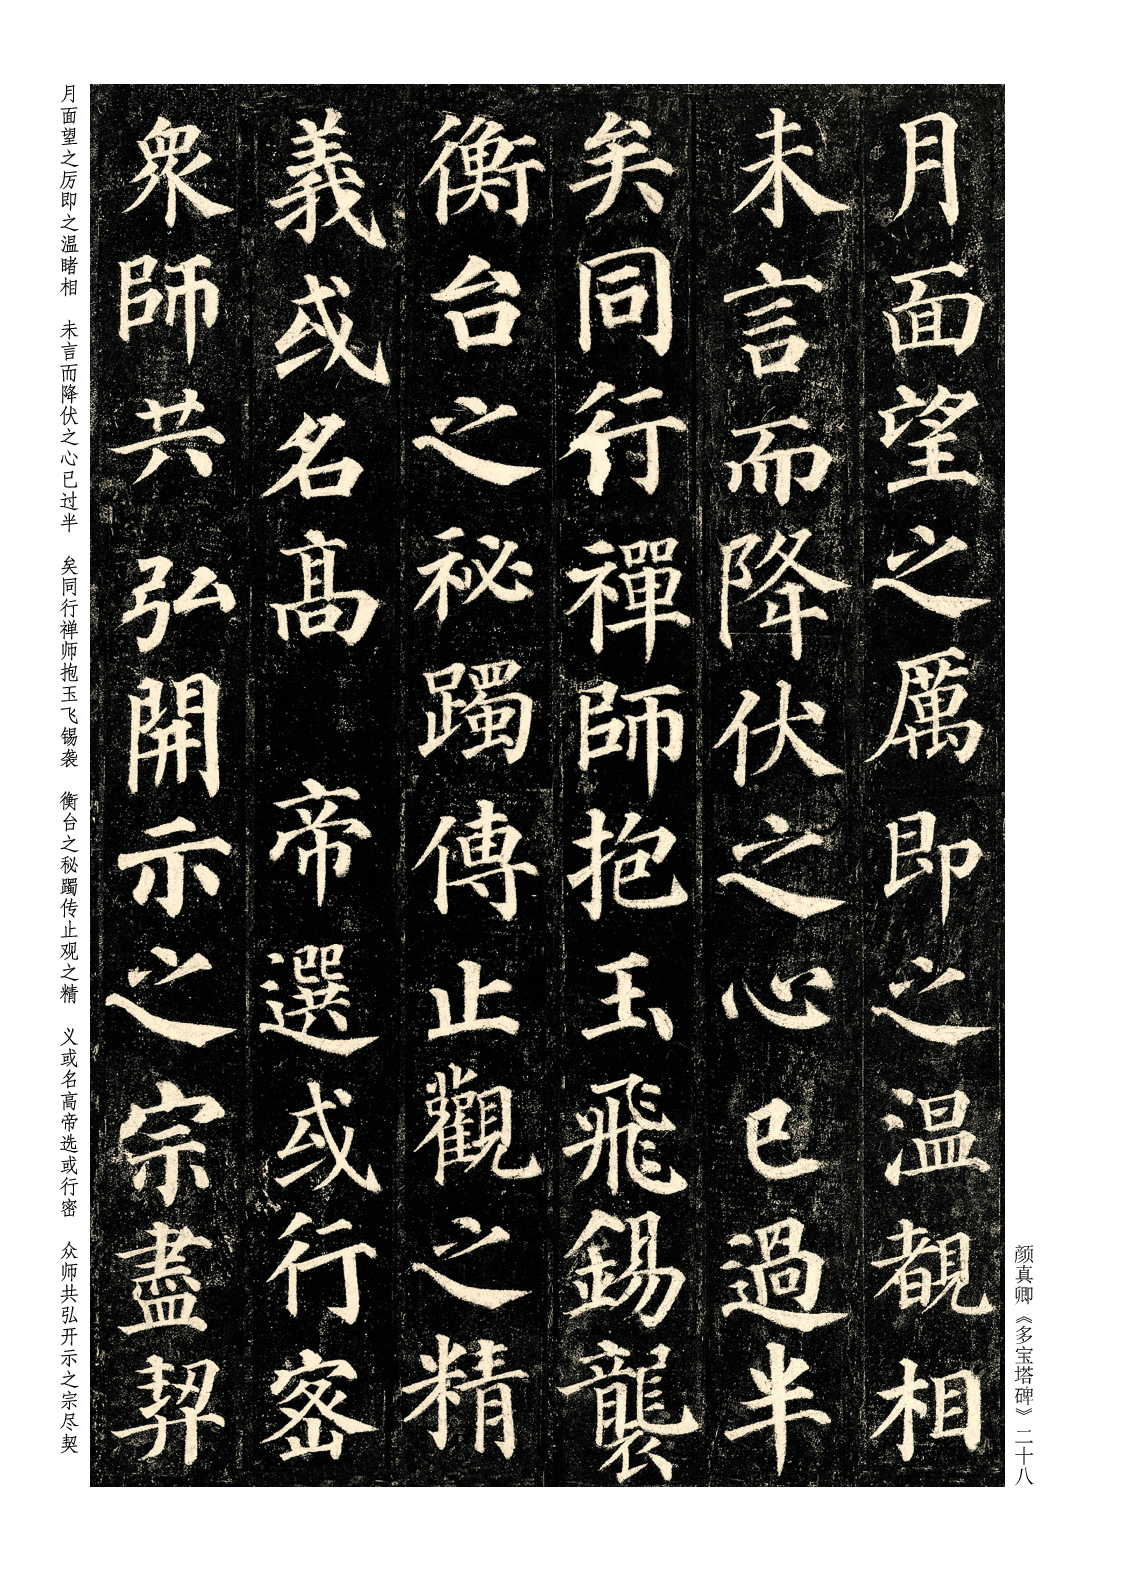 月面望之厲即之温覩相
未言而降伏之心已過半
矣同行禪師抱玉飛錫襲
衡台之秘躅傳止觀之精
義或名高帝選或行密
衆師共弘開示之宗盡契
月面望之厉即之温睹相 未言而降伏之心已过半 矣同行禅师抱玉飞锡袭 衡台之秘躅传止观之精 义或名高帝选或行密 众师共弘开示之宗尽契
颜真卿《多宝塔碑》二十八